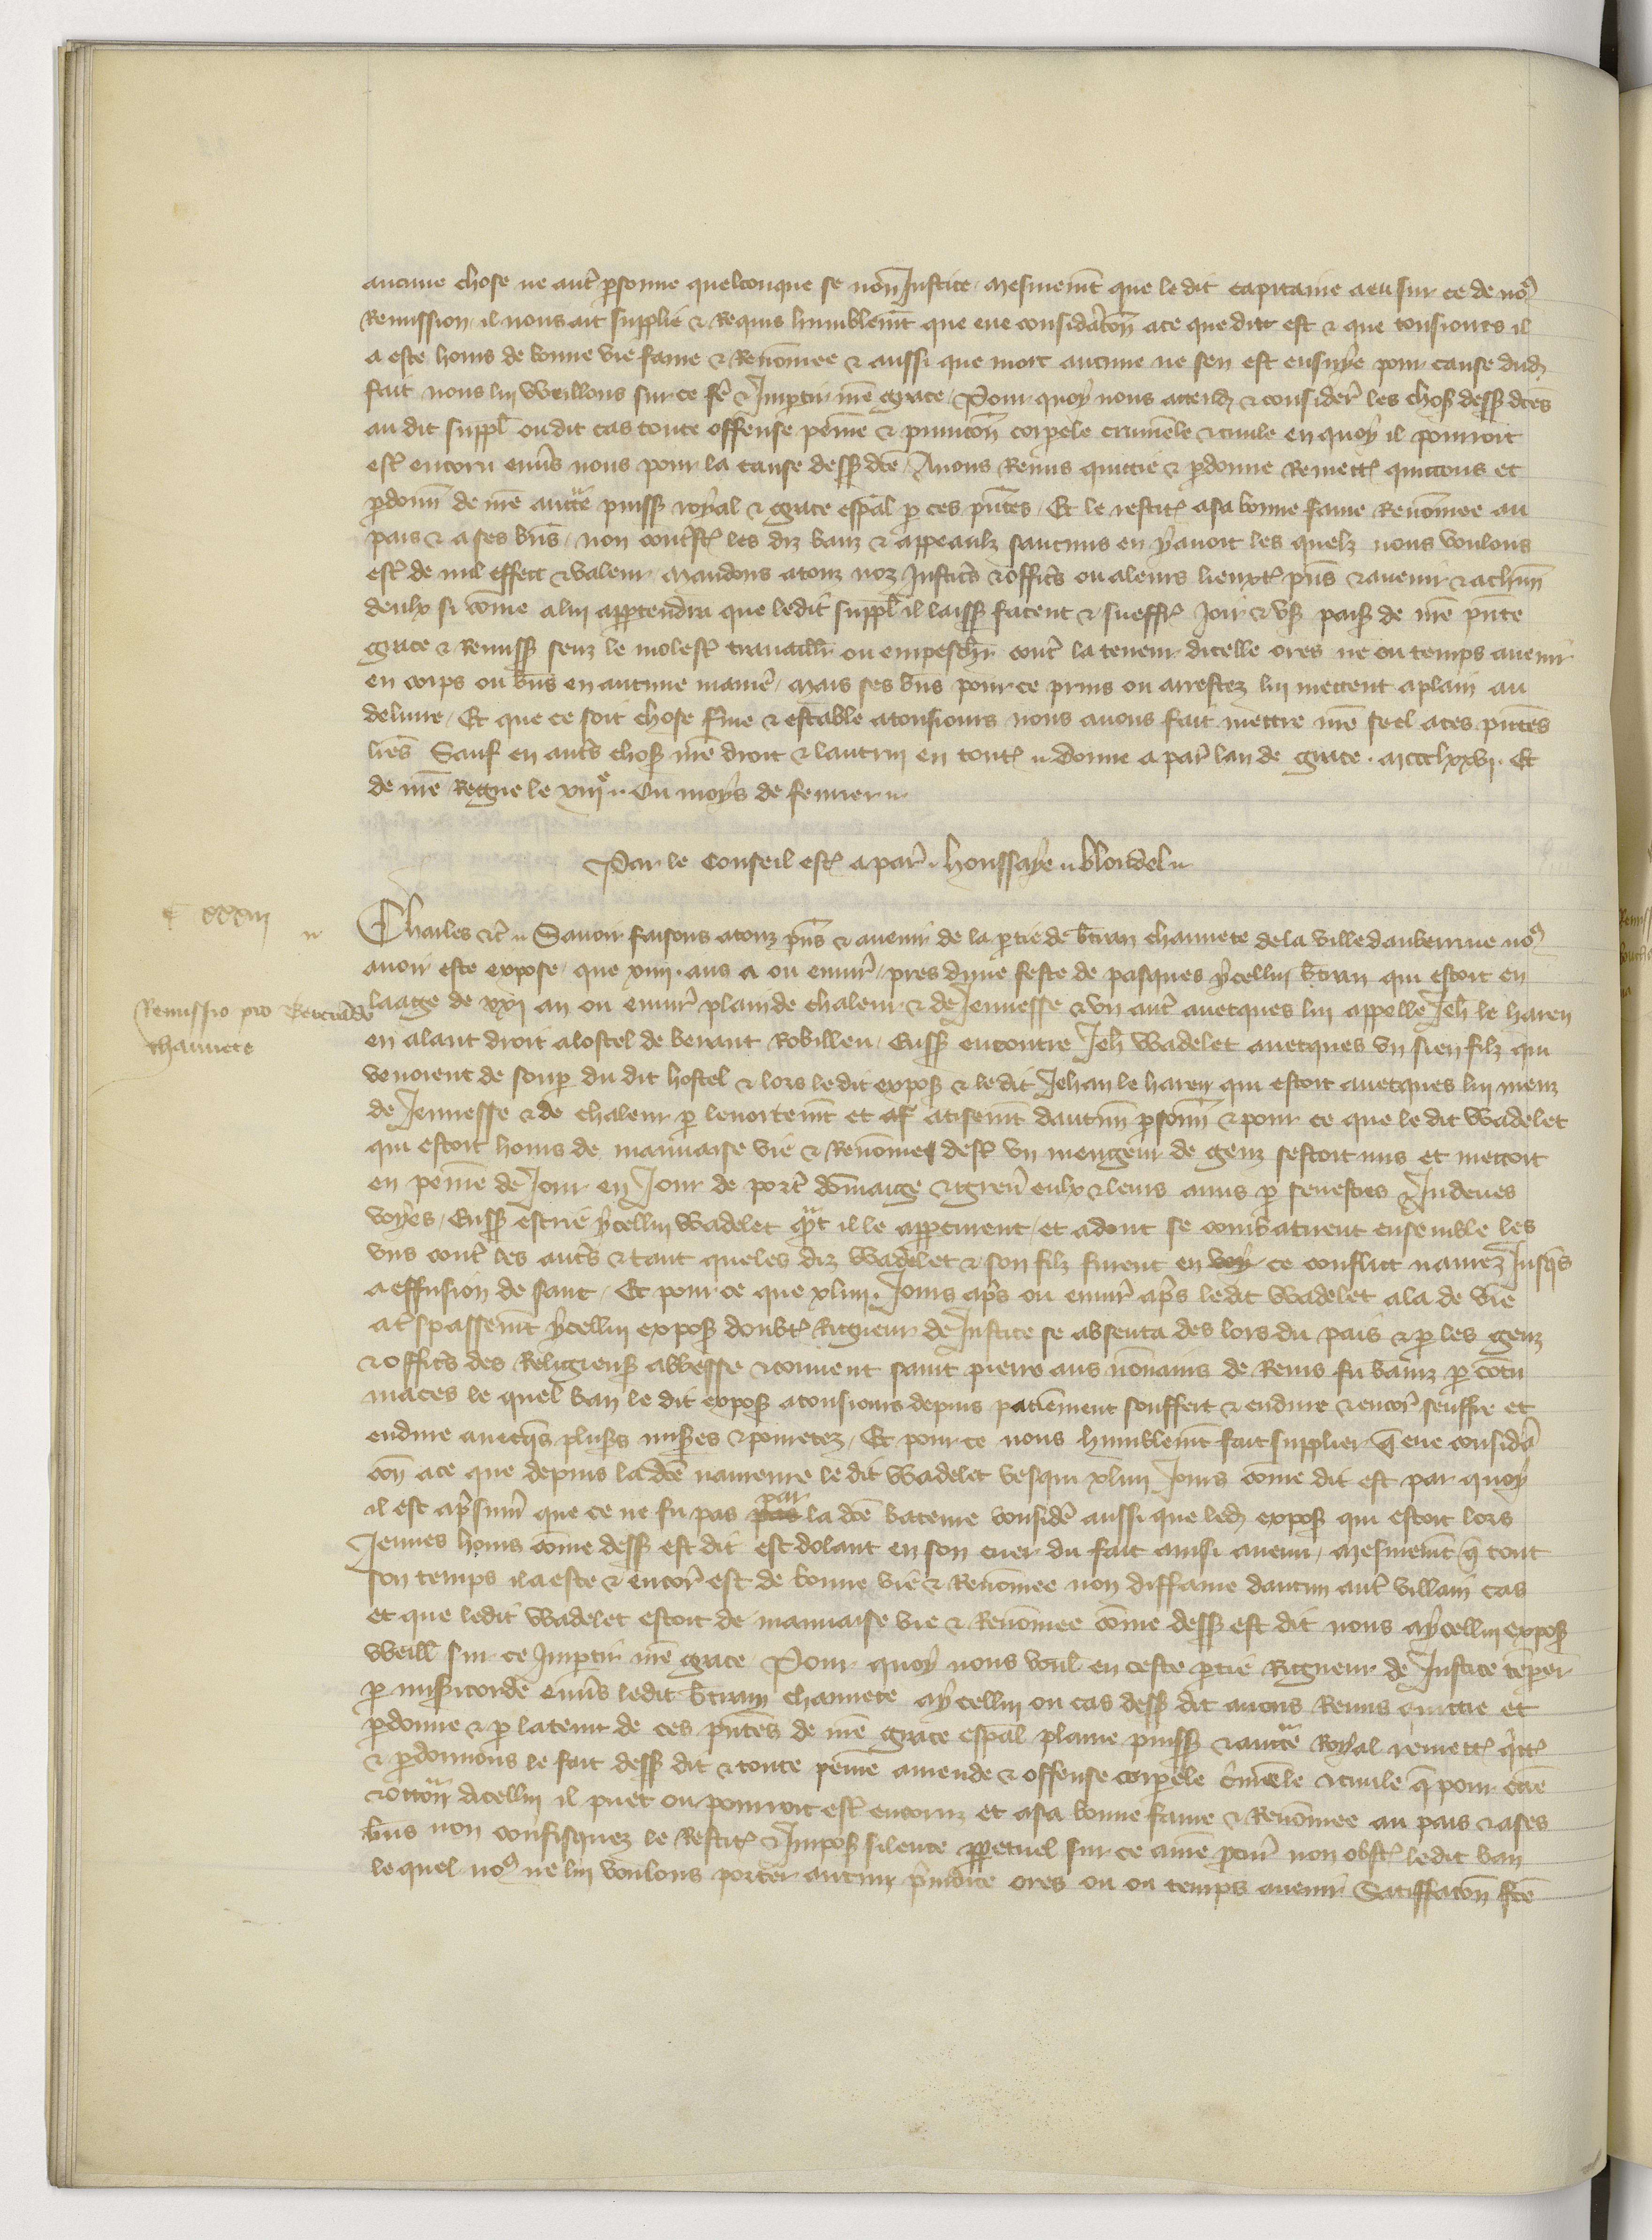 aucune chose ne aut̉ ꝑsonne quelconque se non Justice / mesmem̄t que le dit capitaine a eu sur ce de noꝰ
Remission / il nous ait supplie & Requis humblem̄t que eue considꝰac̄on a ce que dit est & que tousiours il
a este homs de bonne vie fame & Renōmee & aussi que mort aucune ne sen est ensuye pour cause dud
fait nous lui Weillons sur ce fē & Impartir nr̄e grace / Pour quoy nous attend & consider̉ les chos dess dc̄es
au dit suppl̄ ou dit cas toute offense peine & punic̄on corpele criminele & ciuile en quoy il pourroit
est̉ encoru enūs nous pour la cause dess dc̄e / Auons Remis quictie & ꝑdonne Remett̉ quictons et
ꝑdonn̄ de nr̄e auc̄te puiss royal & grace esp̄al ꝑ ces pn̄tes / Et le restit̉ a sa bonne fame Renōmee au
pais & a ses bn̄s / non contr̉st̉ les diz banz & appeaulx saucuns en yauoit les quelx nous voulons
est̉ de nul effect & valeur / Mandons a touz noz Justic̉s & offic̉s ou a leurs lieuxt̉ pn̄s & auenir & a chūn
deulx si cōme a lui appartendra que ledit suppl̄ il laiss facent & sueffr̉ Joir & vs̉ pais de nr̄e pn̄te
grace & Remiss senz le molest̉ trauaill̉ ou empesch̉ cont̉ la teneur dicelle ores ne ou temps auenir
en corps ou bn̄s en aucune manier̉ / mais ses bn̄s pour ce prins ou arrestez lui mettent a plain au
deliure / Et que ce soit chose ferme & estable a tousiours nous auons fait mettre nr̄e seel a ces pn̄tes
lr̄es Sauf en aut̉s chos nr̄e droit & lautrui en tout̉ // donne a par̉ lan de grace . mccclxxvi . Et
de nr̄e Regne le xiiiᵉ // Ou moys de feurier //
Par le Conseil est̉ a par̉ // houssaye // blondel //
xxxiii
Charles &c̉ // Sauoir faisons a touz pn̄s & auenir de la ꝑtie de b̄tran channete de la ville dauberiue noꝰ
auoir este expose / que xiiii . ans a ou enuir̉ / pres dune feste de pasques ycellui b̄tran qui estoit en
Remissio pro Bertrādo
channete
laage de xxi an ou enuir̉ plain de chaleur & de Jeunesse & vn aut̉ auecques lui appelle Jeh̄ le haren
en alant droit a lostel de berant Robillen / Euss encontre Jeh̄ Wadelet auecques vn sien filz qui
venoient de soup du dit hostel & lors ledit expos & le dit Jehan le haren qui estoit auecques lui meuz
de Jeunesse & de chaleur ꝑ lenortem̄t et af atisem̄t daucun̄ ꝑsonn̄ & pour ce que le dit Wadelet
qui estoit homs de mauuaise vie & Renōmee dest̉ vn mengeur de genz sestoit mis et mettoit
en peine de Jour en Jour de port̉ dōmaige & greu̓ eulx & leurs amis ꝑ senestres & Indeues
voyes / Euss escrie ycellui Wadelet q̄nt il le apperceurent / et adont se combatirent ensemble les
vns cont̉ les aut̉s & tant que les diz Wadelet & son filz furent en voy ce conflict naurez Jusq̄s
a effusion de sanc / Et pour ce que xliiii . Jours ap̉s ou enuir̉ ap̉s ledit Wadelet ala de vie
a t̉spassem̄t ycellui expos doubt̉ Rigueur de Justice se absenta des lors du pais & ꝑ les genz
& offic̉s des Religieus abbesse & couuent saint pierre aus nōnains de Reins fu baniz ꝑ cōtu
maces le quel ban le dit expos a tousiours depuis paciēment souffert & endure & encor̉ seuffre et
endure auecq̄s plus̉s mis̉es & pouretez / Et pour ce nous humblem̄t fait supplier q̄ eue considꝰa
con̄ a ce que depuis la dc̄e naureure le dit Wadelet vesqui xliiii Jours cōme dit est par quoy
il est a p̉sum̉ que ce ne fu pas pas par la dc̄e bateure considē aussi que led expos qui estoit lors
Jeunes homs cōme dess est dit est dolant en son cuer du fait ainsi auenu / mesmem̄t q̄ tout
son temps il a este & encor̉ est de bonne vie & Renōmee non diffame daucun aut̉ villain cas
et que ledit Wadelet estoit de mauuaise vie & Renōmee cōme dess est dit nous a ycellui expos
Weill̄ sur ce Impartir nr̄e grace Pour quoy nous voul̄ en ceste ꝑtie Rigueur de Justice tēper̉
ꝑ mis̉icorde enūs ledit b̄tran channete a ycellui ou cas dess dit auons Remis quictie et
ꝑdonne & ꝑ la teneur de ces pn̄tes de nr̄e grace esp̄al plaine puiss & auc̄te Royal remett̉ q̄tt̉
& ꝑdonnons le fait dess dit & toute peine amende & offense corpele c̉minele & ciuile q̄ pour cause
& occōn dicellui il puet ou pourroit est̉ encoruz et a sa bonne fame & Renōmee au pais & a ses
bn̄s non confisquez le Restit̉ & Impos silence ꝑpetuel sur ce a nr̄e ꝓcur̉ non obst̉ ledit ban
le quel noꝰ ne lui voulons porter aucun p̉iudice ores ou ou temps auenir Satiffac̄on fc̄e